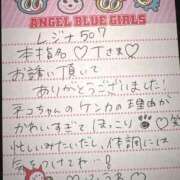 ANGEL BLUE GIRLS
レジナ507
本指名♡Tさま♡
お誘い頂いて
ありがとうございました!
ネコちゃんのケンカの理由が
かわいすぎてほっこり
忙しいみたいだし、体調には
気をつけてね!